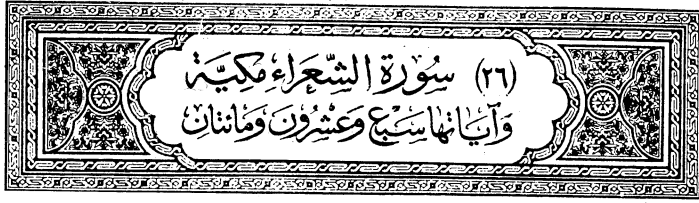 (٢٦) سُورَة الشُّعَرَاءِ مَكِيَّة
وَآيَاتهَا سَبْع وَعِشْرُون وَمَائتَان